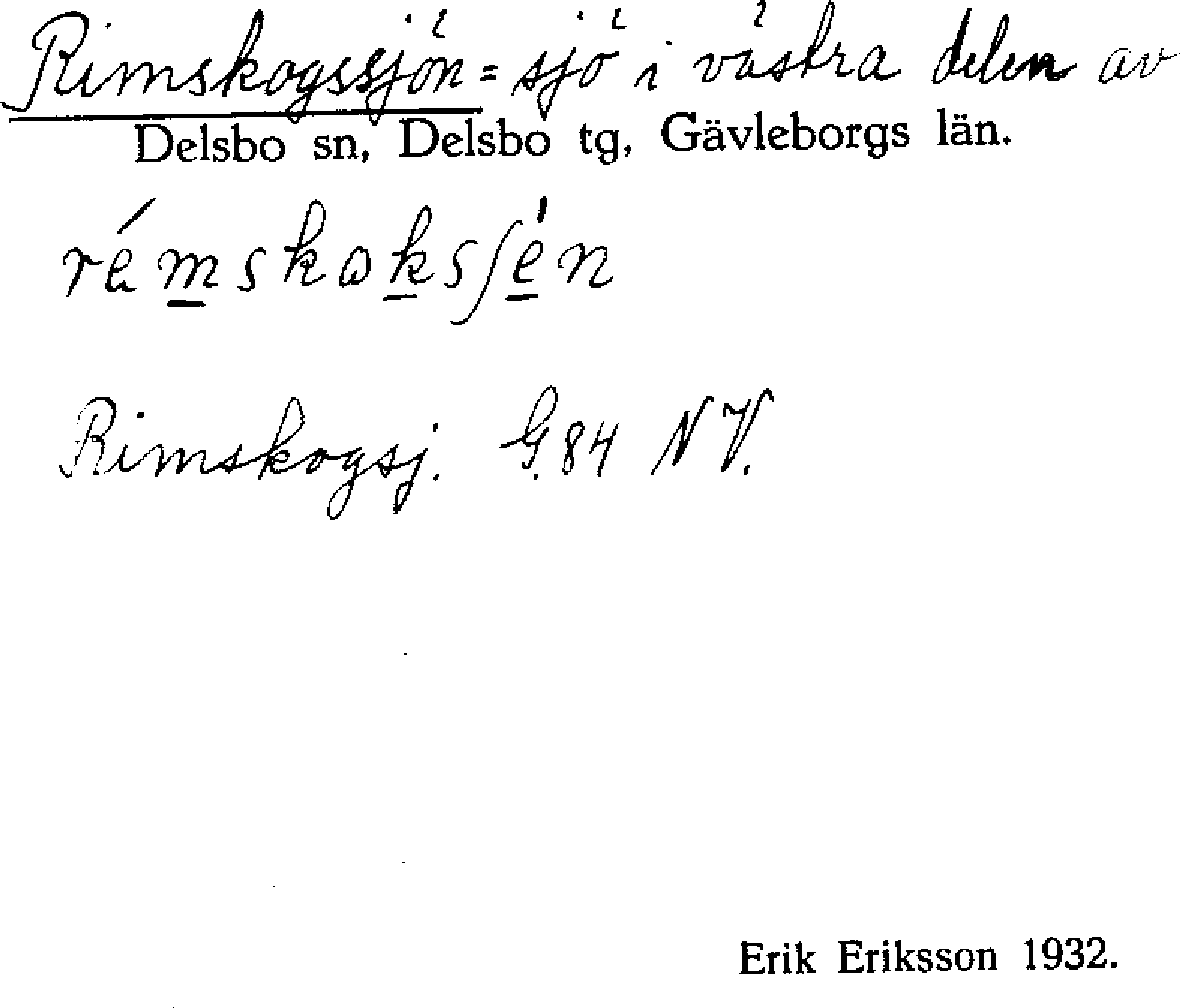 Rimskogssjön = sjö i västra delen av
Delsbo sn, Delsbo tg, Gävleborgs län.
rémskoksʃén
Rimskogsj. G.84 NV.
Erik Eriksson 1932.